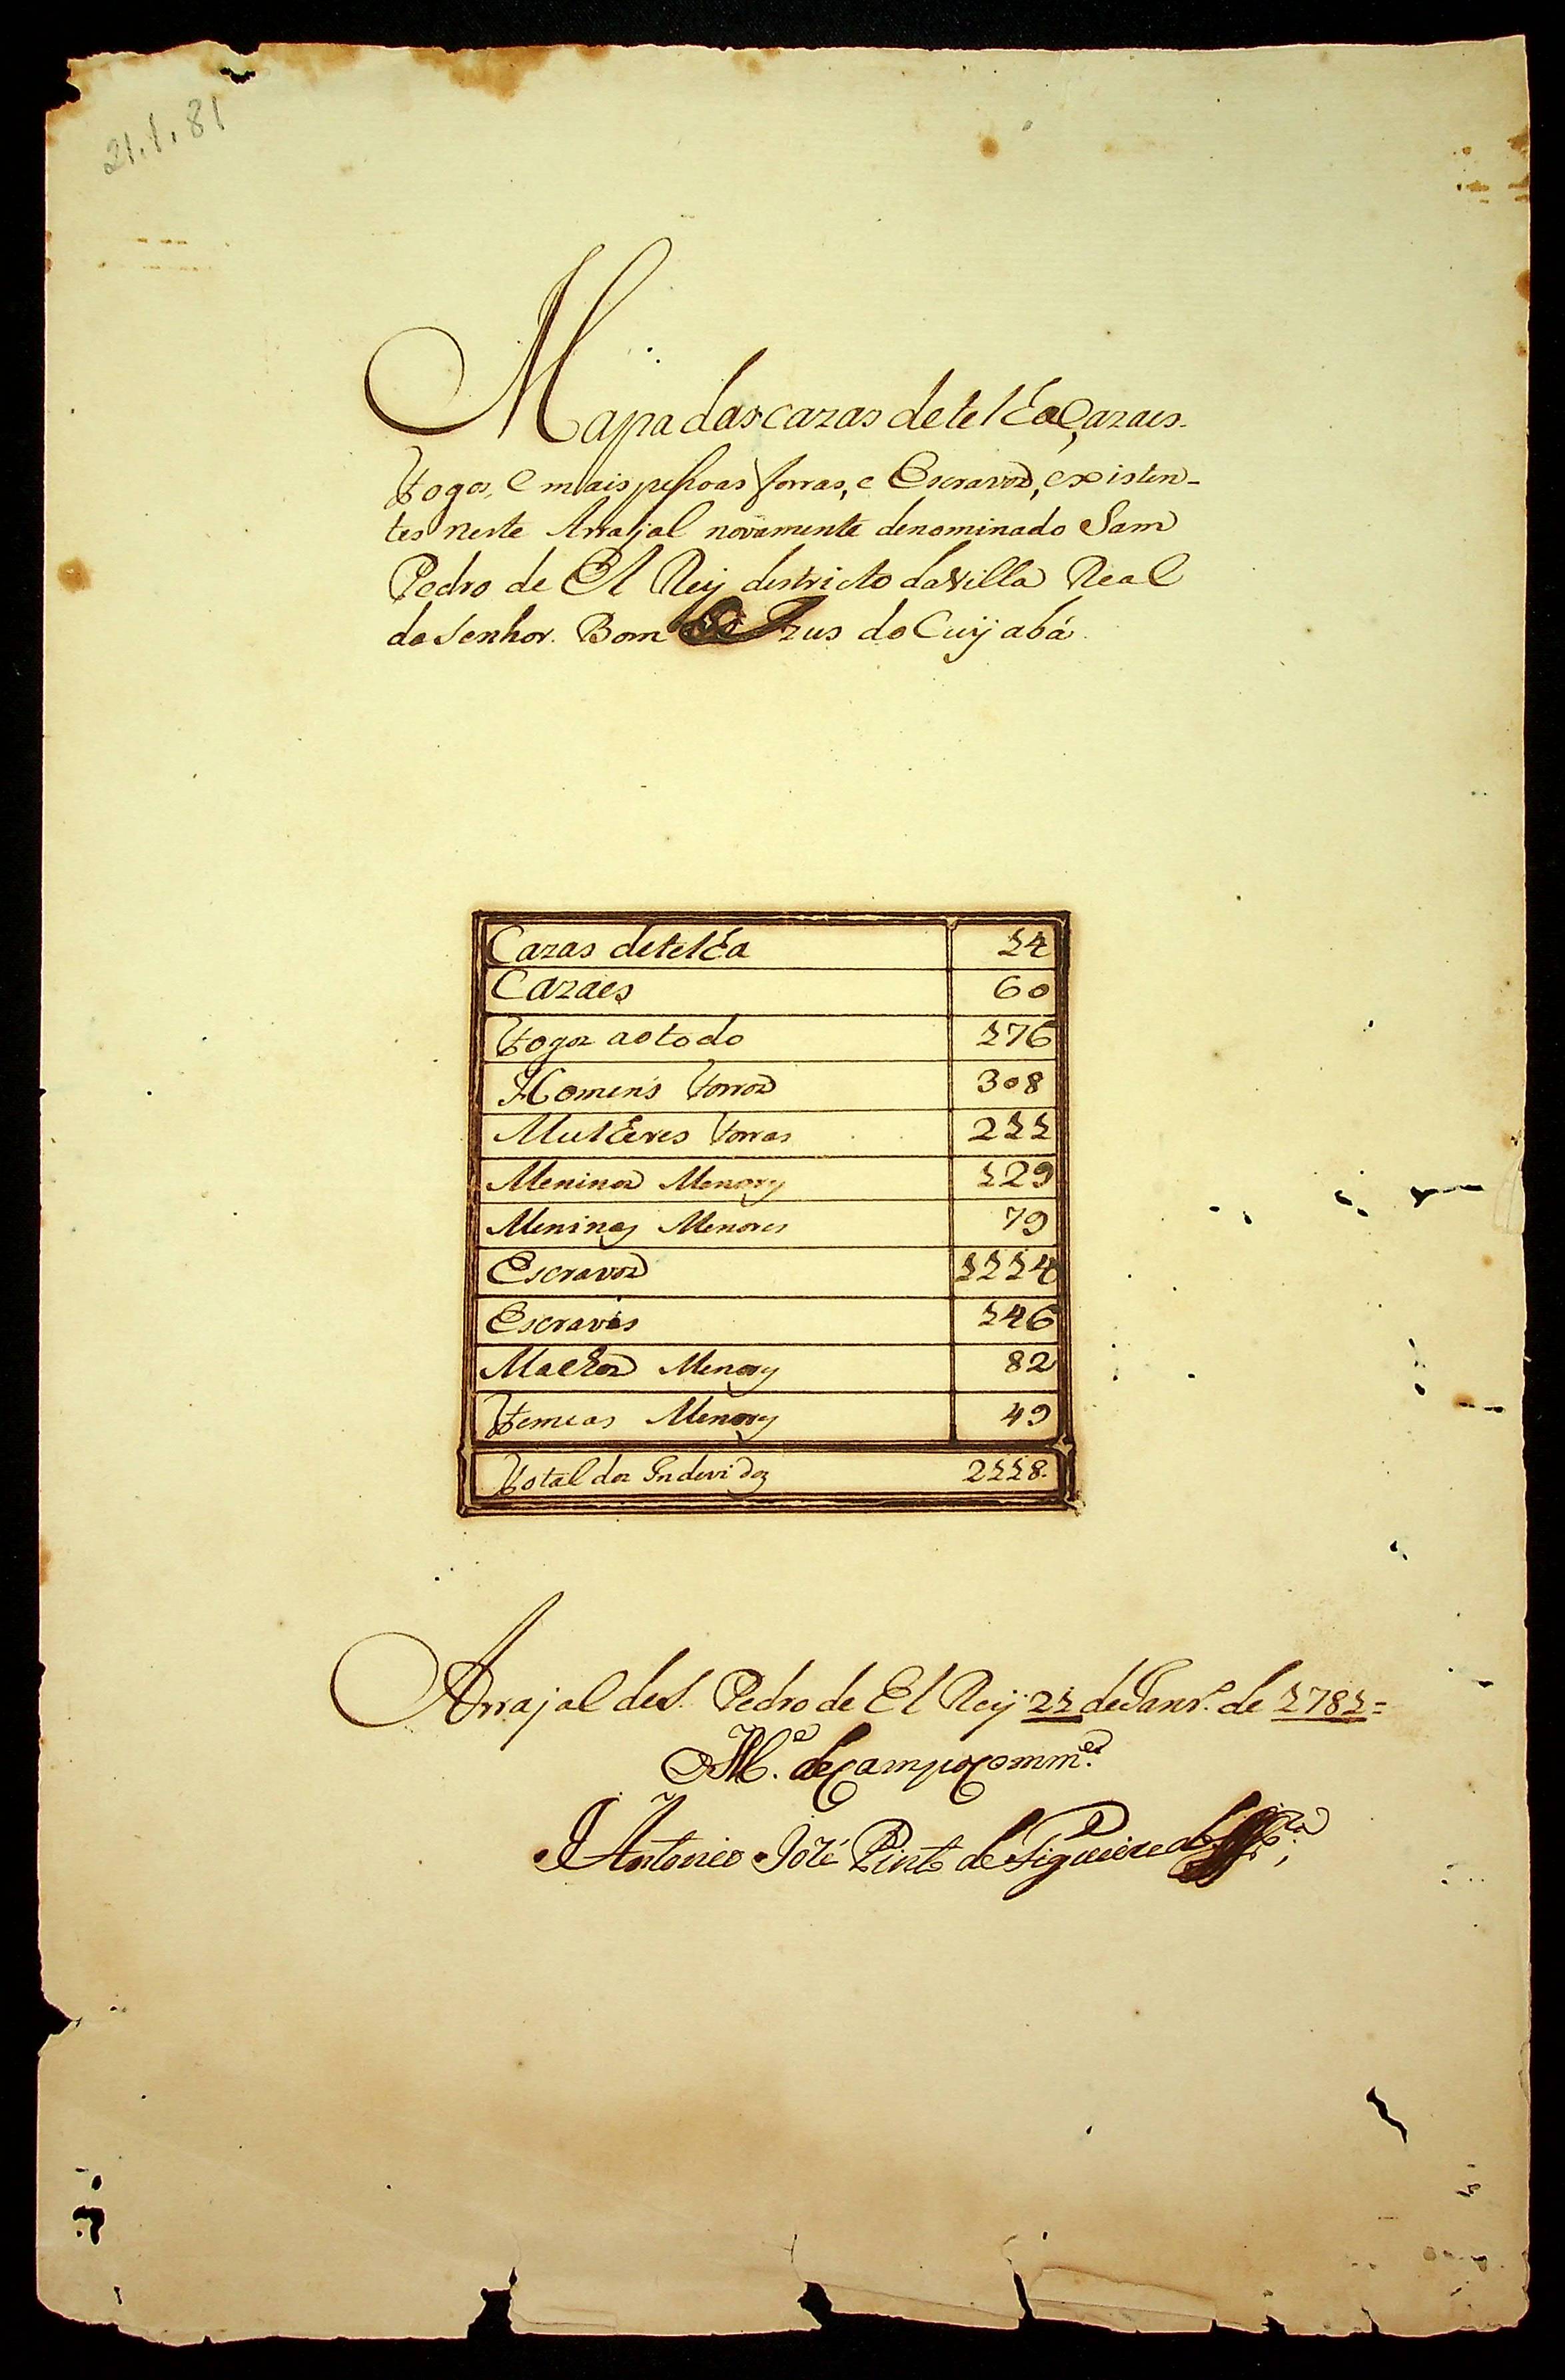 21.1.81
Mapa das cazas de telha, Cazaes.
Fogos, e mais pessoas forras, e Escravos, existen-
tes neste Arrajal novamente denominado Sam
Pedro de El Rey destricto da Villa Real
do Senhor Bom Jezus do Cuyabá.
Cazas de telha 14
Cazaes 60
Fogos ao todo 176
Homens forros 308
Mulheres forras 211
Meninos Menores 129
Meninas Menores 79
Escravos 1114
Escravas 146
Machos Menores 82
Femeas Menores 49
Total dos Indevidos 2118.
Arrajal de S. Pedro de El Rey 21 de Janr.º de 1781=
M.e de Campo Comm.e
Antonio José Pinto de Figueiredo